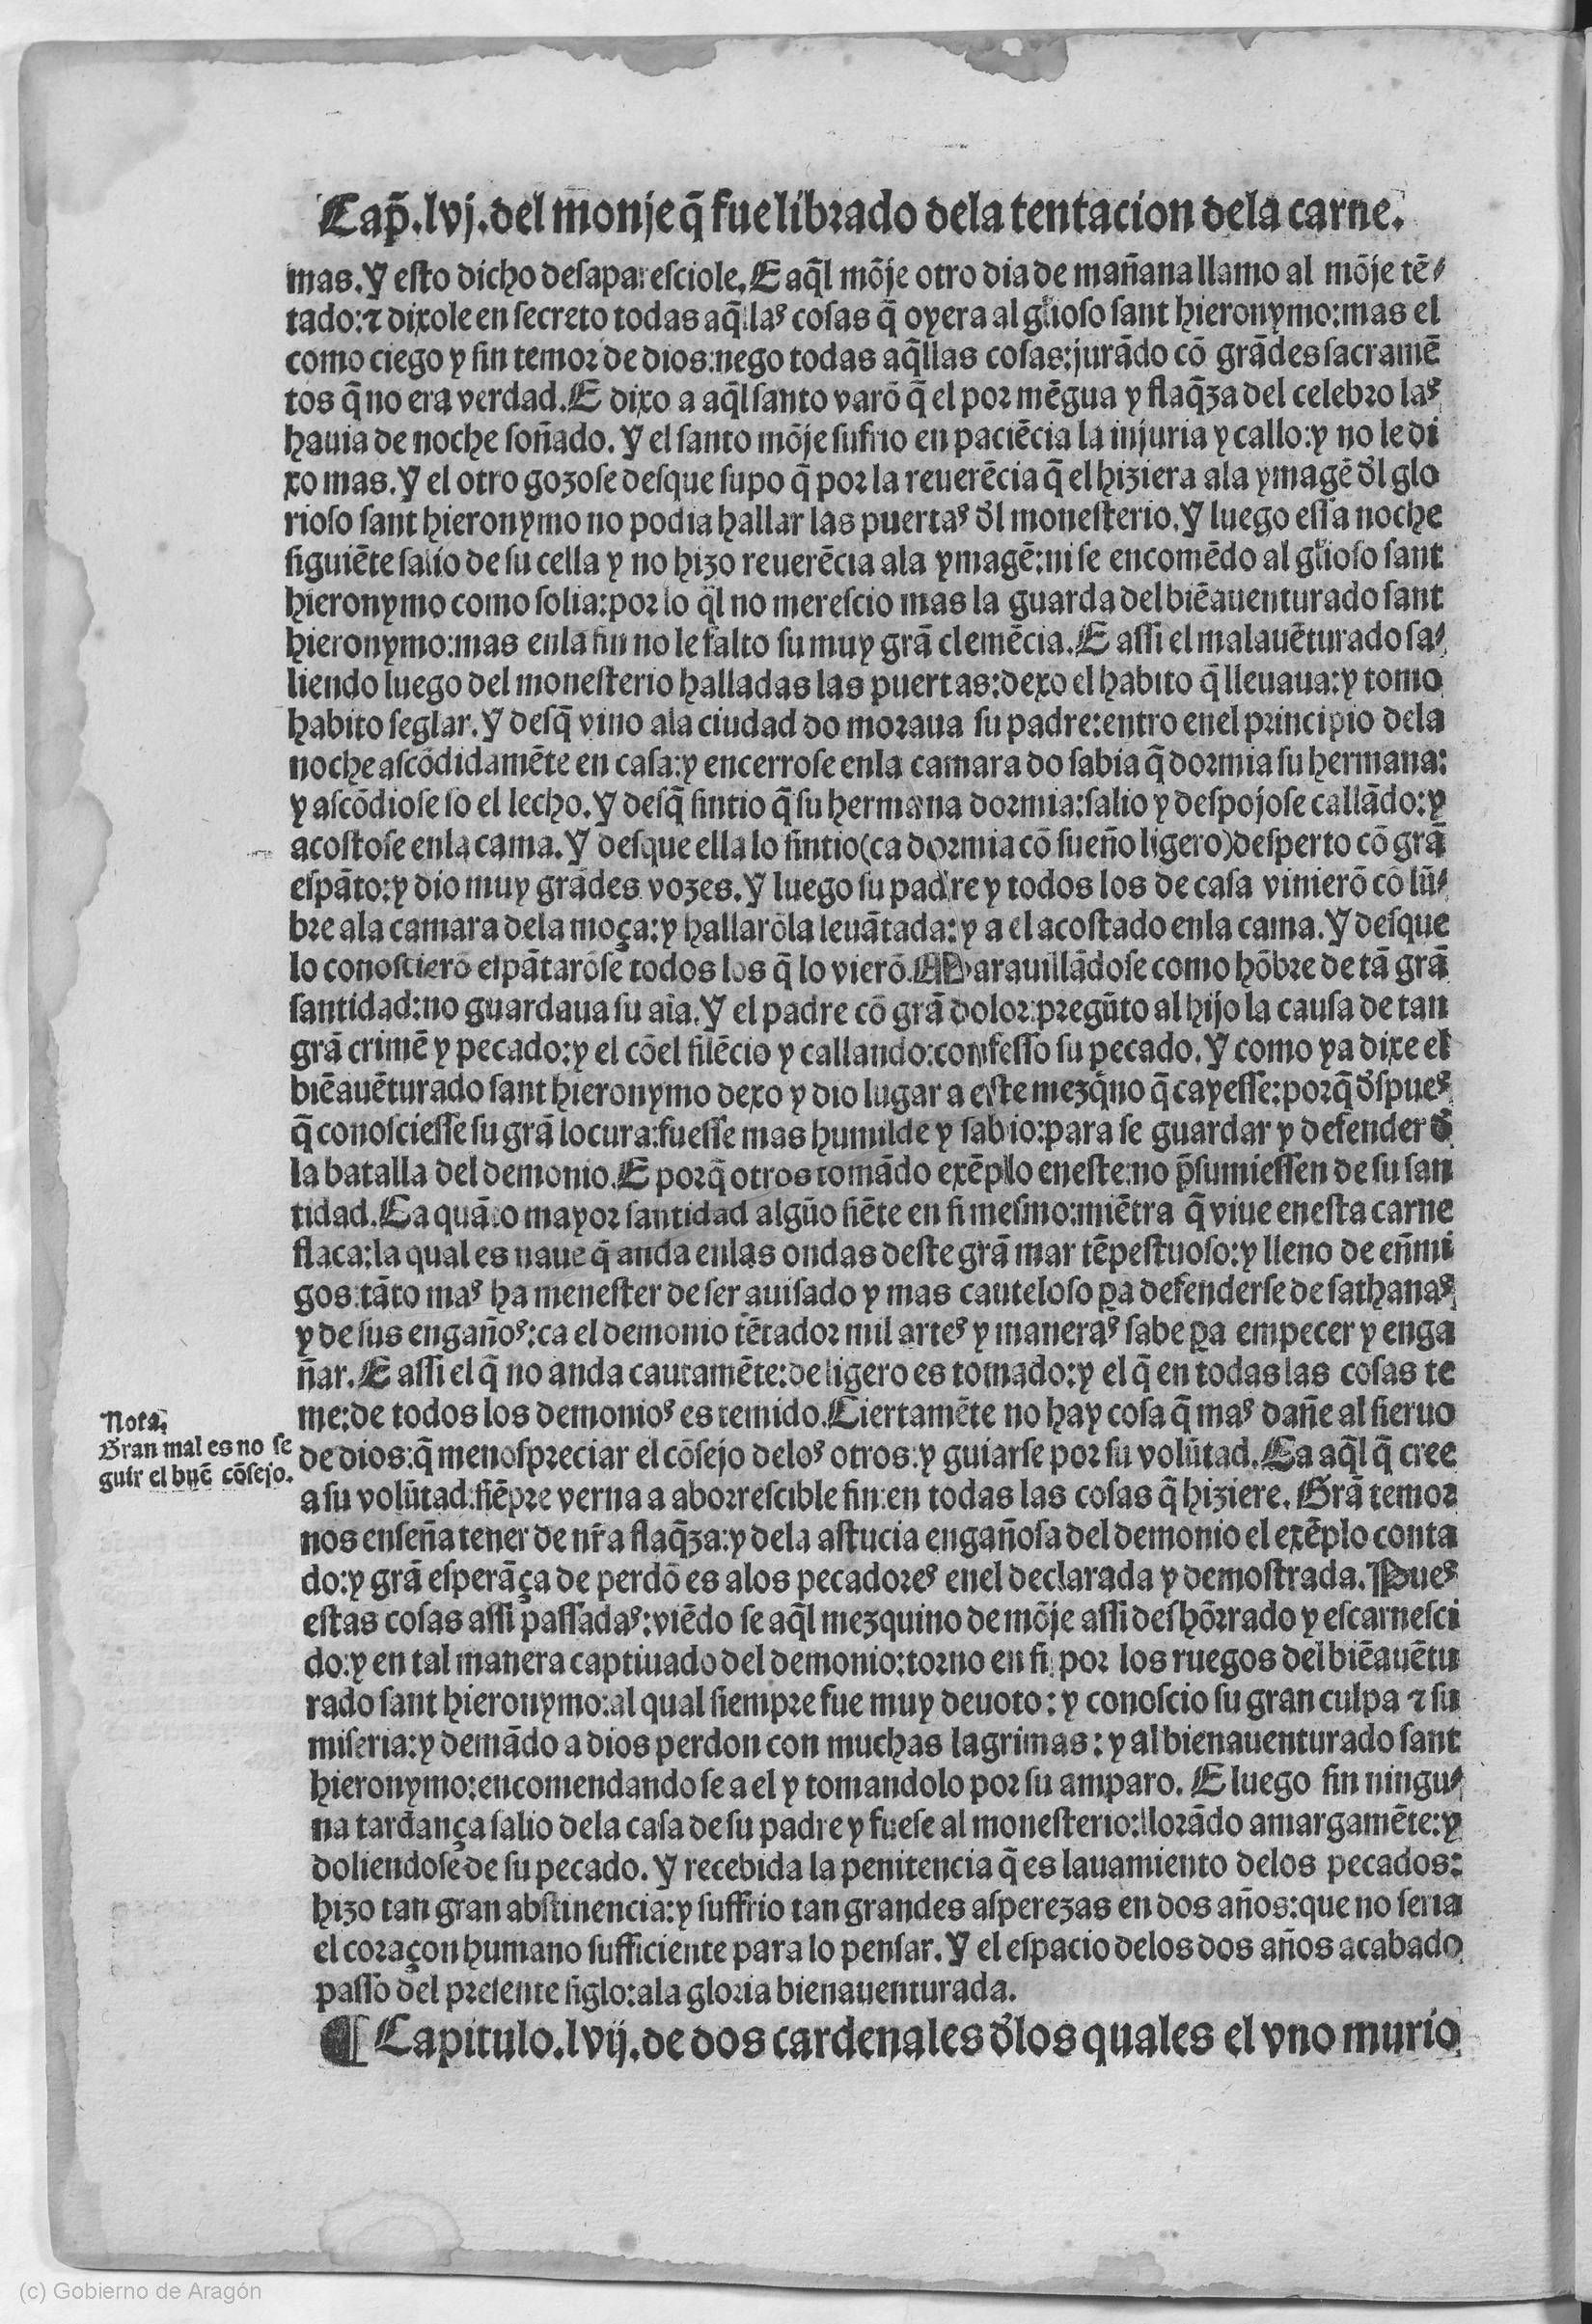 Cap̃.lvj.del monje q̃ fue librado dela tentacion dela carne.
mas. Y esto dicho desaparesciole. E aq̃l mõje otro dia de mañana llamo al mõje tẽ-
tado: ⁊ dixole en secreto todas aq̃llas cosas q̃ oyera al glioso sant hieronymo: mas el
como ciego y sin temor de dios: nego todas aq̃llas cosas: jurãdo cõ grãdes sacramẽ
tos q̃ no era verdad. E dixo a aq̃l santo varõ q̃ el por mẽgua y flaq̃za del celebro las
hauia de noche soñado. Y el santo mõje sufrio en paciẽcia la injuria y callo: y no le di
xo mas. Y el otro gozose desque supo q̃ por la reuerẽcia q̃ el hiziera ala ymagẽ d̃l glo
rioso sant hieronymo no podia hallar las puertas d̃l monesterio. Y luego essa noche
siguiẽte salio de su cella y no hizo reuerẽcia ala ymagẽ: ni se encomẽdo al glioso sant
hieronymo como solia: por lo q̃l no merescio mas la guarda del biẽauenturado sant
hieronymo: mas enla fin no le falto su muy grã clemẽcia. E assi el malauẽturado sa-
liendo luego del monesterio halladas las puertas: dexo el habito q̃ lleuaua: y tomo
habito seglar. Y desq̃ vino ala ciudad do moraua su padre: entro enel principio dela
noche ascõdidamẽte en casa: y encerrose enla camara do sabia q̃ dormia su hermana:
y ascõdiose so el lecho. Y desq̃ sintio q̃ su hermana dormia: salio y despojose callãdo: y
acostose enla cama. Y desque ella lo sintio (ca dormia cõ sueño ligero) desperto cõ grã
espãto: y dio muy grãdes vozes. Y luego su padre y todos los de casa vinierõ cõ lũ-
bre ala camara dela moça: y hallarõla leuãtada: y a el acostado enla cama. Y desque
lo conoscierõ espãtarõse todos los q̃ lo vierõ. Marauillãdose como hõbre de tã grã
santidad: no guardaua su aĩa. Y el padre cõ grã dolor: pregũto al hijo la causa de tan
grã crimẽ y pecado: y el cõel silẽcio y callando: confesso su pecado. Y como ya dixe el
biẽauẽturado sant hieronymo dexo y dio lugar a este mezq̃no q̃ cayesse: porq̃ d̃spues
q̃ conosciesse su grã locura: fuesse mas humilde y sabio: para se guardar y defender d̃
la batalla del demonio. E porq̃ otros tomãdo exẽplo eneste: no p̃sumiessen de su san
tidad. Ca quãto mayor santidad algũo siẽte en si mesmo: miẽtra q̃ viue enesta carne
flaca: la qual es naue q̃ anda enlas ondas deste grã mar tẽpestuoso: y lleno de eñmi
gos: tãto mas ha menester de ser auisado y mas cauteloso ꝑa defenderse de sathanas
y de sus engaños: ca el demonio tẽtador mil artes y maneras sabe ꝑa empecer y enga
ñar. E assi el q̃ no anda cautamẽte: de ligero es tomado: y el q̃ en todas las cosas te
me: de todos los demonios es temido. Ciertamẽte no hay cosa q̃ mas dañe al sieruo
de dios: q̃ menospreciar el cõsejo delos otros: y guiarse por su volũtad. Ca aq̃l q̃ cree
a su volũtad: siẽpre verna a aborrescible fin: en todas las cosas q̃ hiziere. Grã temor
nos enseña tener de nr̃a flaq̃za: y dela astucia engañosa del demonio el exẽplo conta
do: y grã esperãça de perdõ es alos pecadores enel declarada y demostrada. Pues
estas cosas assi passadas: viẽdo se aq̃l mezquino de mõje assi deshõrrado y escarnesci
do: y en tal manera captiuado del demonio: torno en si por los ruegos del biẽauẽtu
rado sant hieronymo: al qual siempre fue muy deuoto: y conoscio su gran culpa ⁊ su
miseria: y demãdo a dios perdon con muchas lagrimas: y al bienauenturado sant
hieronymo: encomendando se a el y tomandolo por su amparo. E luego sin ningu-
na tardança salio dela casa de su padre y fuese al monesterio: llorãdo amargamẽte: y
doliendose de su pecado. Y recebida la penitencia q̃ es lauamiento delos pecados:
hizo tan gran abstinencia: y suffrio tan grandes asperezas en dos años: que no seria
el coraçon humano sufficiente para lo pensar. Y el espacio delos dos años acabado
passo del presente siglo: ala gloria bienauenturada.
¶ Capitulo.lvij.de dos cardenales d̃los quales el vno murio
Nota.
Gran mal es no se
guir el buẽ cõsejo.
(c) Gobierno de Aragón